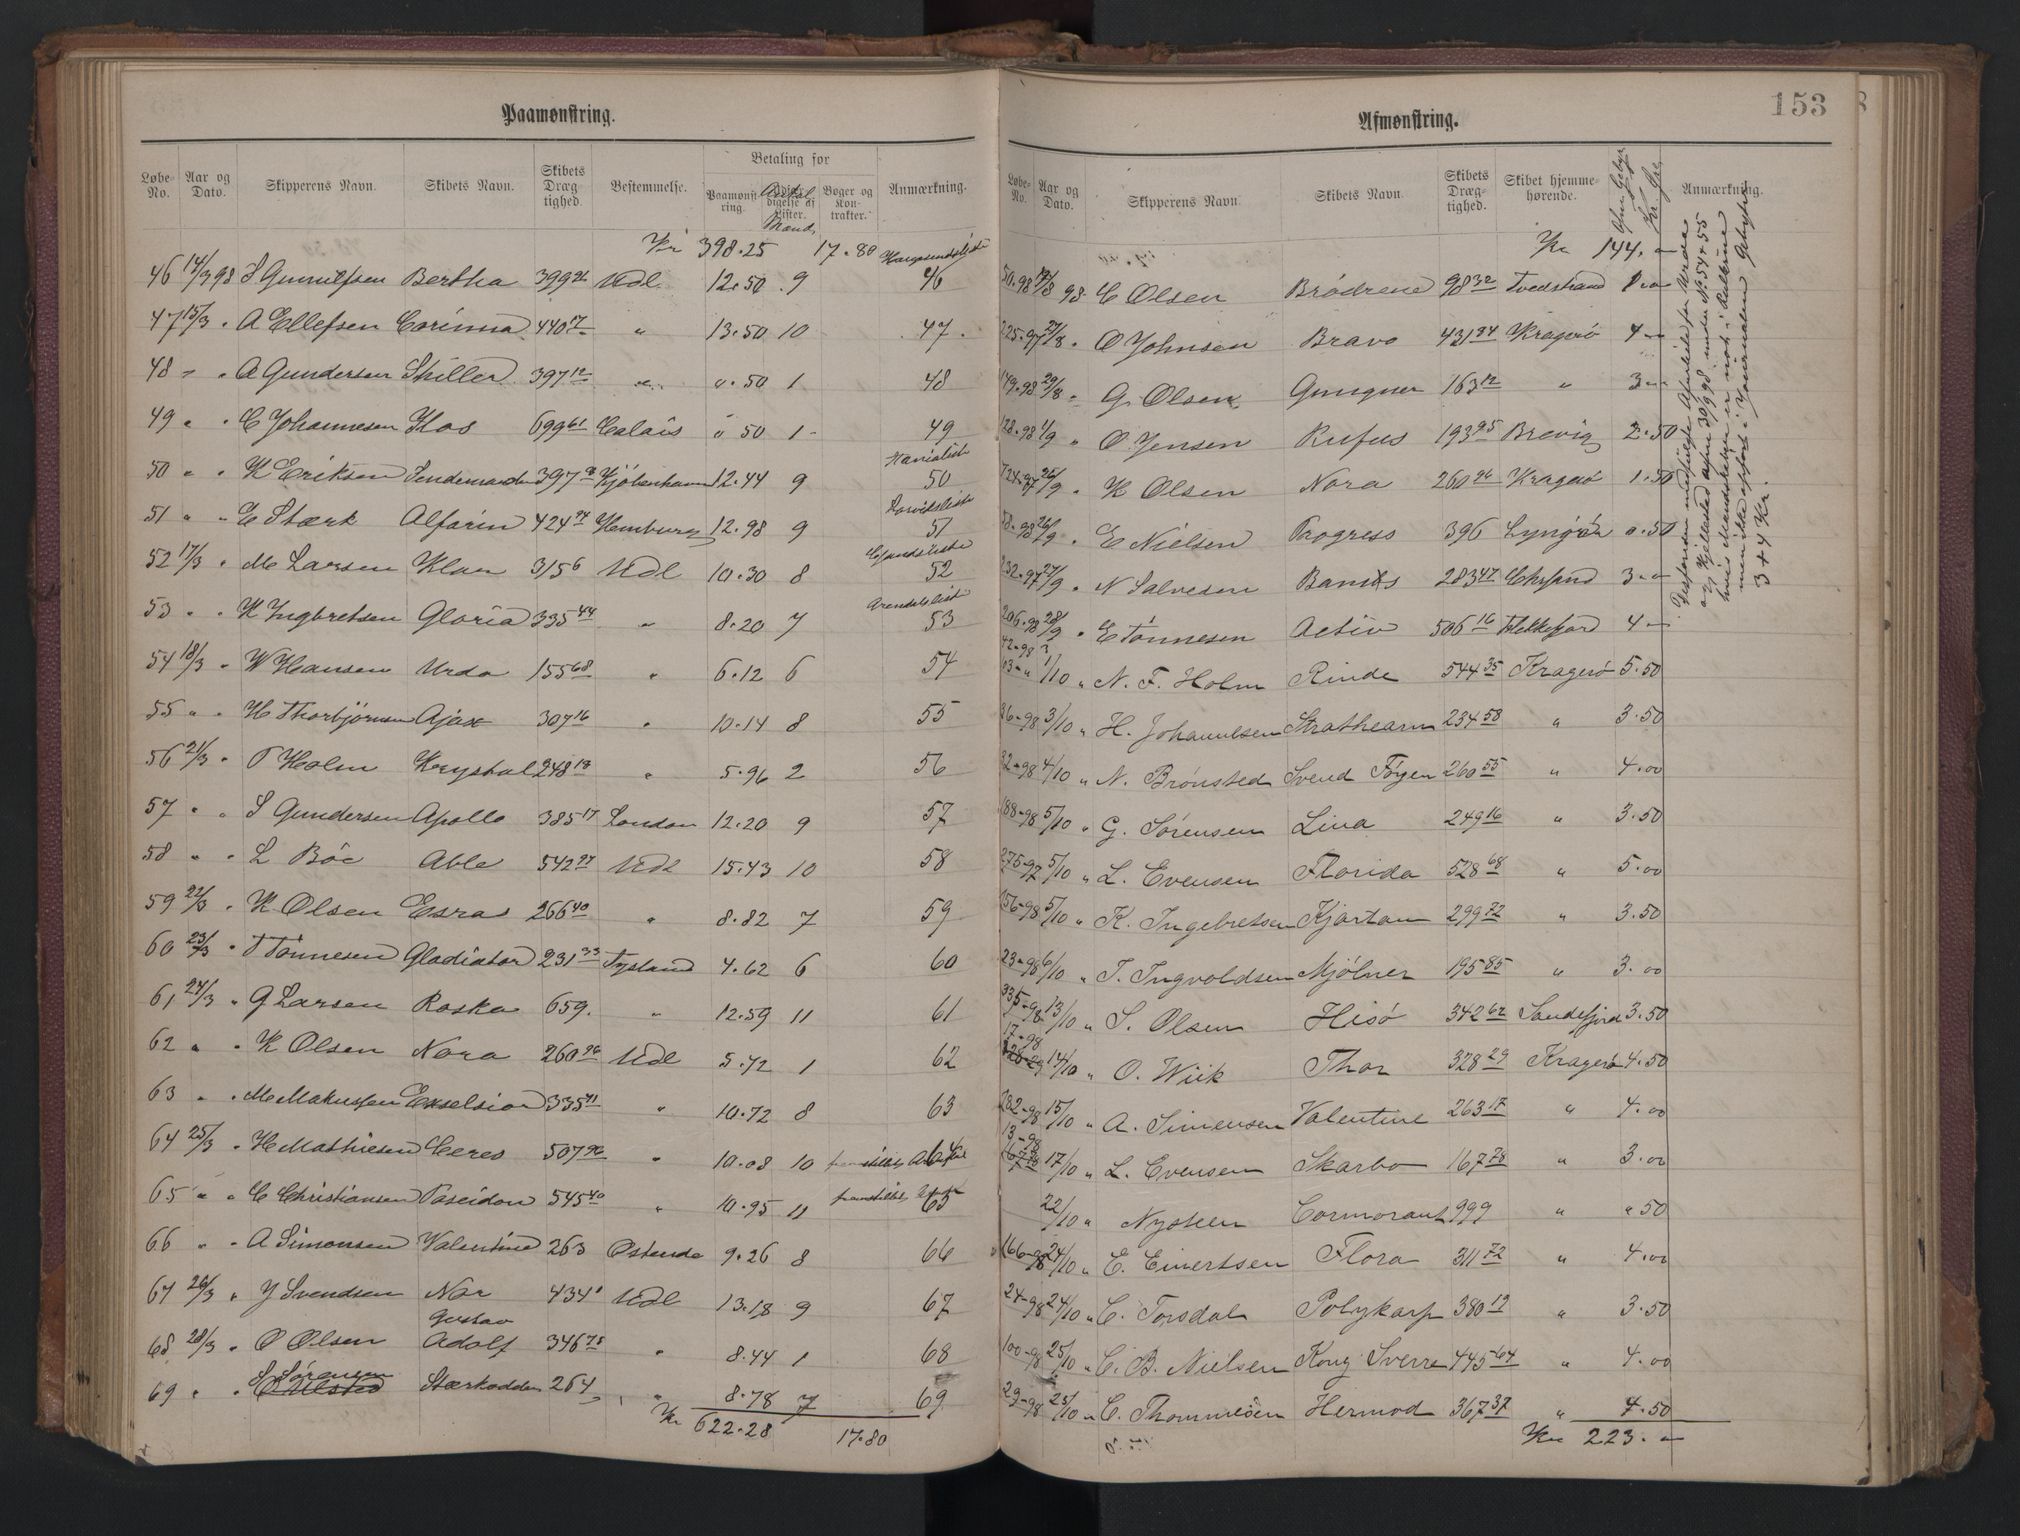 Paamønstring.
Løbe-No. Aar og Dato. Skipperens Navn. Skibets Navn. Skibets Dræg tighed. Bestemmelse. Betaling for Paamønst ring. Antal Mand Bøger og Kon- trakter. Anmærkning.
Kr 398.25 17.80
46 14/3 98 S Gunulfsen Bertha 399 Udl 12.50 9 46
47 15/3 " A Ellefsen Corinna 440 17 " 13.50 10 47
48 " " A Gundersen Skiller 397 12 " ".50 1 48
49 " " C Johannesen Kos 699 61 Calais " 50 1 49
50 " " K Eriksen 397 Kjøbenhavn 12.44 9 50
51 " " E Stærk Alfarin 424 74 Hamburg 12.98 9 51
52 17/3 " M Larsen Klan 315 6 Udl 10.30 8 52
Arendalsliste
53 " " K Ingbretsen Gloria 335 44 " 8.20 7 53
54 18/3 " W Hansen Urda 155 68 " 6.12 6 54
55 " " H Thorbjørnsen Ajax 307 16 " 10.14 8 55
56 21/3 " T Holm Krystal 248 13 " 5.96 2 56
57 " " S Gundersen Apollo 385 17 London 12.20 9 57
58 " " L Bøe Able 542 97 Udl 15.43 10 58
59 22/3 " K Olsen Esras 266 40 " 8.82 7 59
60 23/3 " T Tønnesen Gladiator 231 33 Tysland 4.62 6 60
61 24/3 " G Larsen Roska 659. " 12.59 11 61
62 " " K Olsen Nora 260 96 Udl 5.72 1 62
63 " " M Makussen Exselsior 335 41 " 10.72 8 63
64 25/3 " H Mathiesen Ceres 507 96 " 10.08 10 64
65 " " C Christiansen Poseidon 545 40 " 10.95 11 65
66 " " A Simonsen Valentine 263 Ostende 9.26 8 66
67 26/3 " J Svendsen Nor 434 Udl 13.18 9 67
68 28/3 " O Olsen Gustav Adolf 346 75 " 8.44 1 68
69 " " S Sørensen Stærkodder 264 " 8.78 7 69
Kr 622.28 17.80
Afmønstring.
153
Løbe-No. Aar og Dato. Skipperens Navn. Skibets Navn. Skibets Dræg- tighed. Skibet hjemme- hørende. Anmærkning.
Kr 144. "
50-98 98 C Olsen Brødrene 98 32 Tvedstrand
225-97 27/8 " O Johnsen Bravo 431 84 Kragerø 4 "
149-98 29/8 " G. Olsen Gungner 163 12 " 3 "
128-98 1/9 " O Jensen Rufus 193 95 Brevig 2.50
26/9 " K Olsen Nora 260 96 Kragerø 1.50
58-98 26/9 " E Nielsen Progress 396 Lyngør 0.50
232-97 27/9 " N Salvesen 283 47 Chrsand 3 "
206-98 28/9 " E Tønnesen Activ 506 16 Flekkefjord 4 "
1/10 " N. F. Holm Rinde 544 35 Kragerø 5.50
3/10 " H. Johannesen Strathearn 234 58 " 3.50
4/10 " N. Brønsted Svend Føyen 260 55 " 4.00
188-98 5/10 " G. Sørensen Lina 249 16 " 3.50
275-97 5/10 " L. Evensen Florida 528 68 " 5.00
156-98 5/10 " K. Ingebretsen Kjartan 299 72 " 3.50
23-98 6/10 " T. Ingvoldsen Mjølner 195 85 " 3.00
335-98 13/10 " S. Olsen Hisø 342 62 Sandefjord 3.50
17-98 14/10 " O. Wiik Thor 328 29 Kragerø 4.50
282-98 15/10 " A. Simensen Valentine 263 17 " 4.00
13-98 17/10 " L. Evensen Skarbo 167 78 " 3.00
22/10 " Nysteen Cormorant 999 " " 50
166-98 24/10 " E. Einertsen Flora 311 72 " 4.00
24-98 24/10 " C. Torsdal Polykarp 380 19 " 3.50
100-98 25/10 " C. B. Nielsen Kong Sverre 445 64 " 4.00
29-98 25/10 " C. Thommesen Hermod 367 37 " 4.50
Kr 223. "